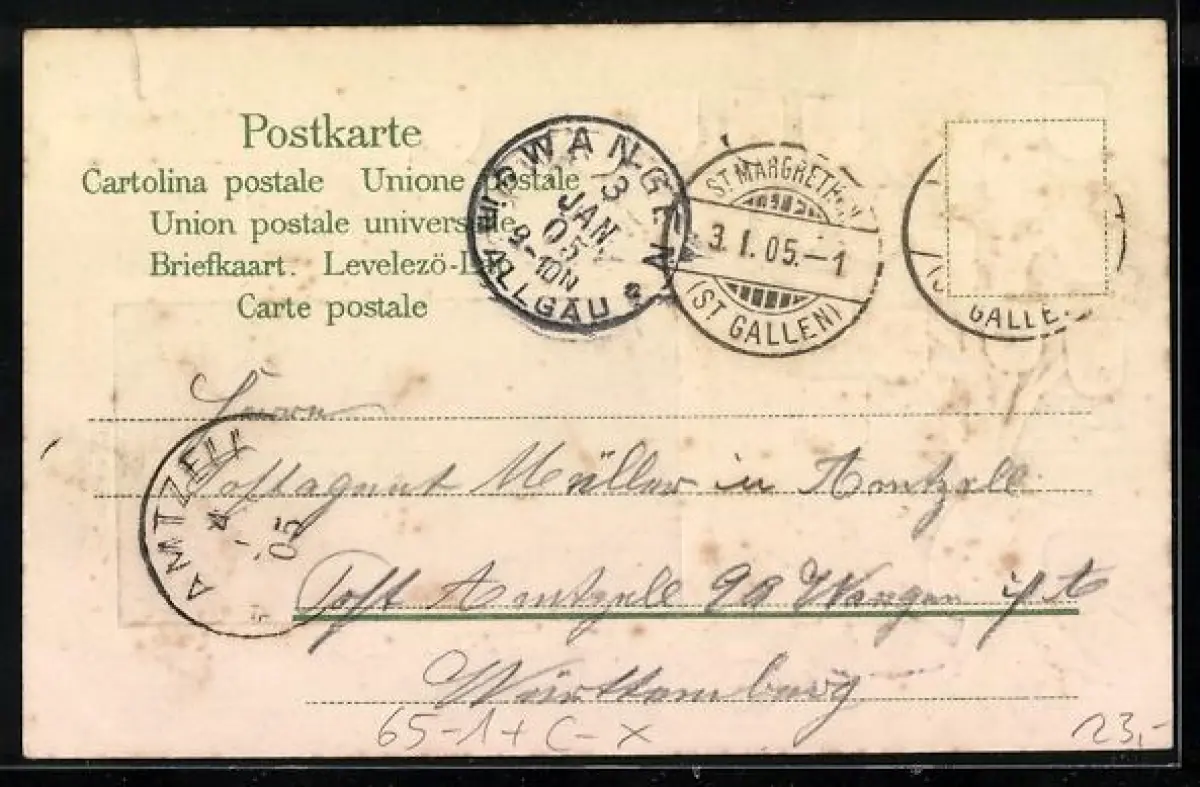 Postkarte
Cartolina postale Unione postale
Union postale universelle
Briefkaart. Levelező-Lap
Carte postale
WANGEN
3
JAN.
05
8-10N
ALLGÄU
ST. MARGRETHEN
3.I.05.–1
(ST GALLEN)
GALLE
Herrn
Postagent Müller in Amtzell
AMTZELL
4
05
Post Amtzell OA Wangen i/A
Württemberg
65-1+ C- X
23,-